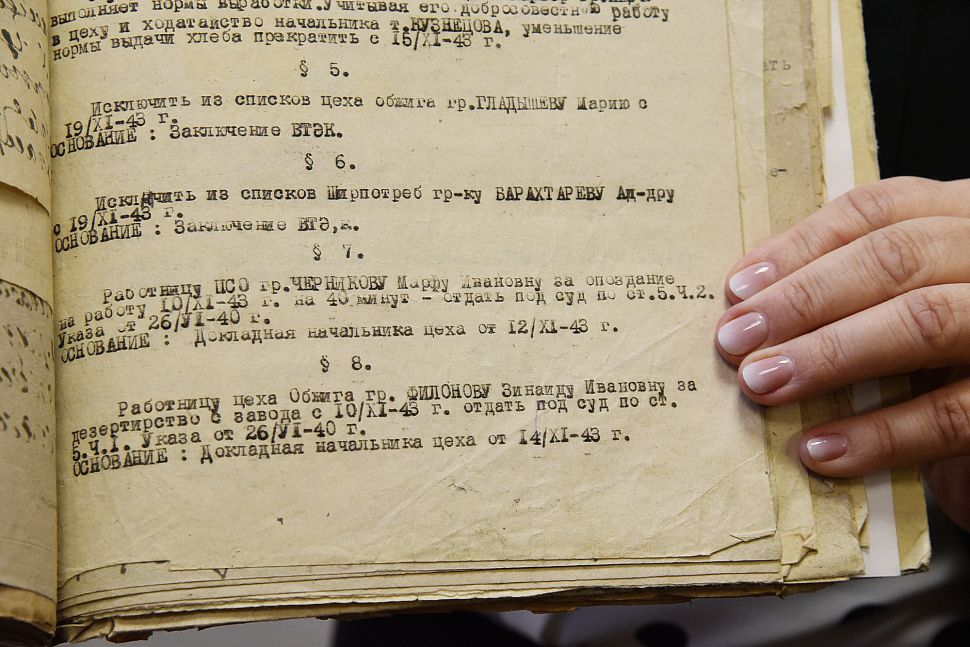 выполняет нормы выработки. Учитывая его добросовестную работу
в цеху и ходатайство начальника т.КУЗНЕЦОВА, уменьшение
нормы выдачи хлеба прекратить с 15/XI-43 г.
§ 5.
Исключить из списков цеха обжига гр.ГЛАДЫШЕВУ Марию с
19/XI-43 г.
ОСНОВАНИЕ : Заключение ВТЭК.
§ 6.
Исключить из списков Ширпотреб гр-ку БАРАХТАРЕВУ Ад-дру
с 19/XI-43 г.
ОСНОВАНИЕ : Заключение ВТЭ,к.
§ 7.
Работницу ПСО гр.ЧЕРНИКОВУ Марфу Ивановну за опоздание
на работу 10/XI-43 г. на 40 минут - отдать под суд по ст.5.Ч.2.
Указа от 26/УІ-40 г.
ОСНОВАНИЕ : Докладная начальника цеха от 12/XI-43 г.
§ 8.
Работницу цеха Обжига гр. ФИЛОНОВУ Зинаиду Ивановну за
дезертирство с завода с 10/XI-43 г. отдать под суд по ст.
5.Ч.I. Указа от 26/УІ-40 г.
ОСНОВАНИЕ : Докладная начальника цеха от 14/XI-43 г.